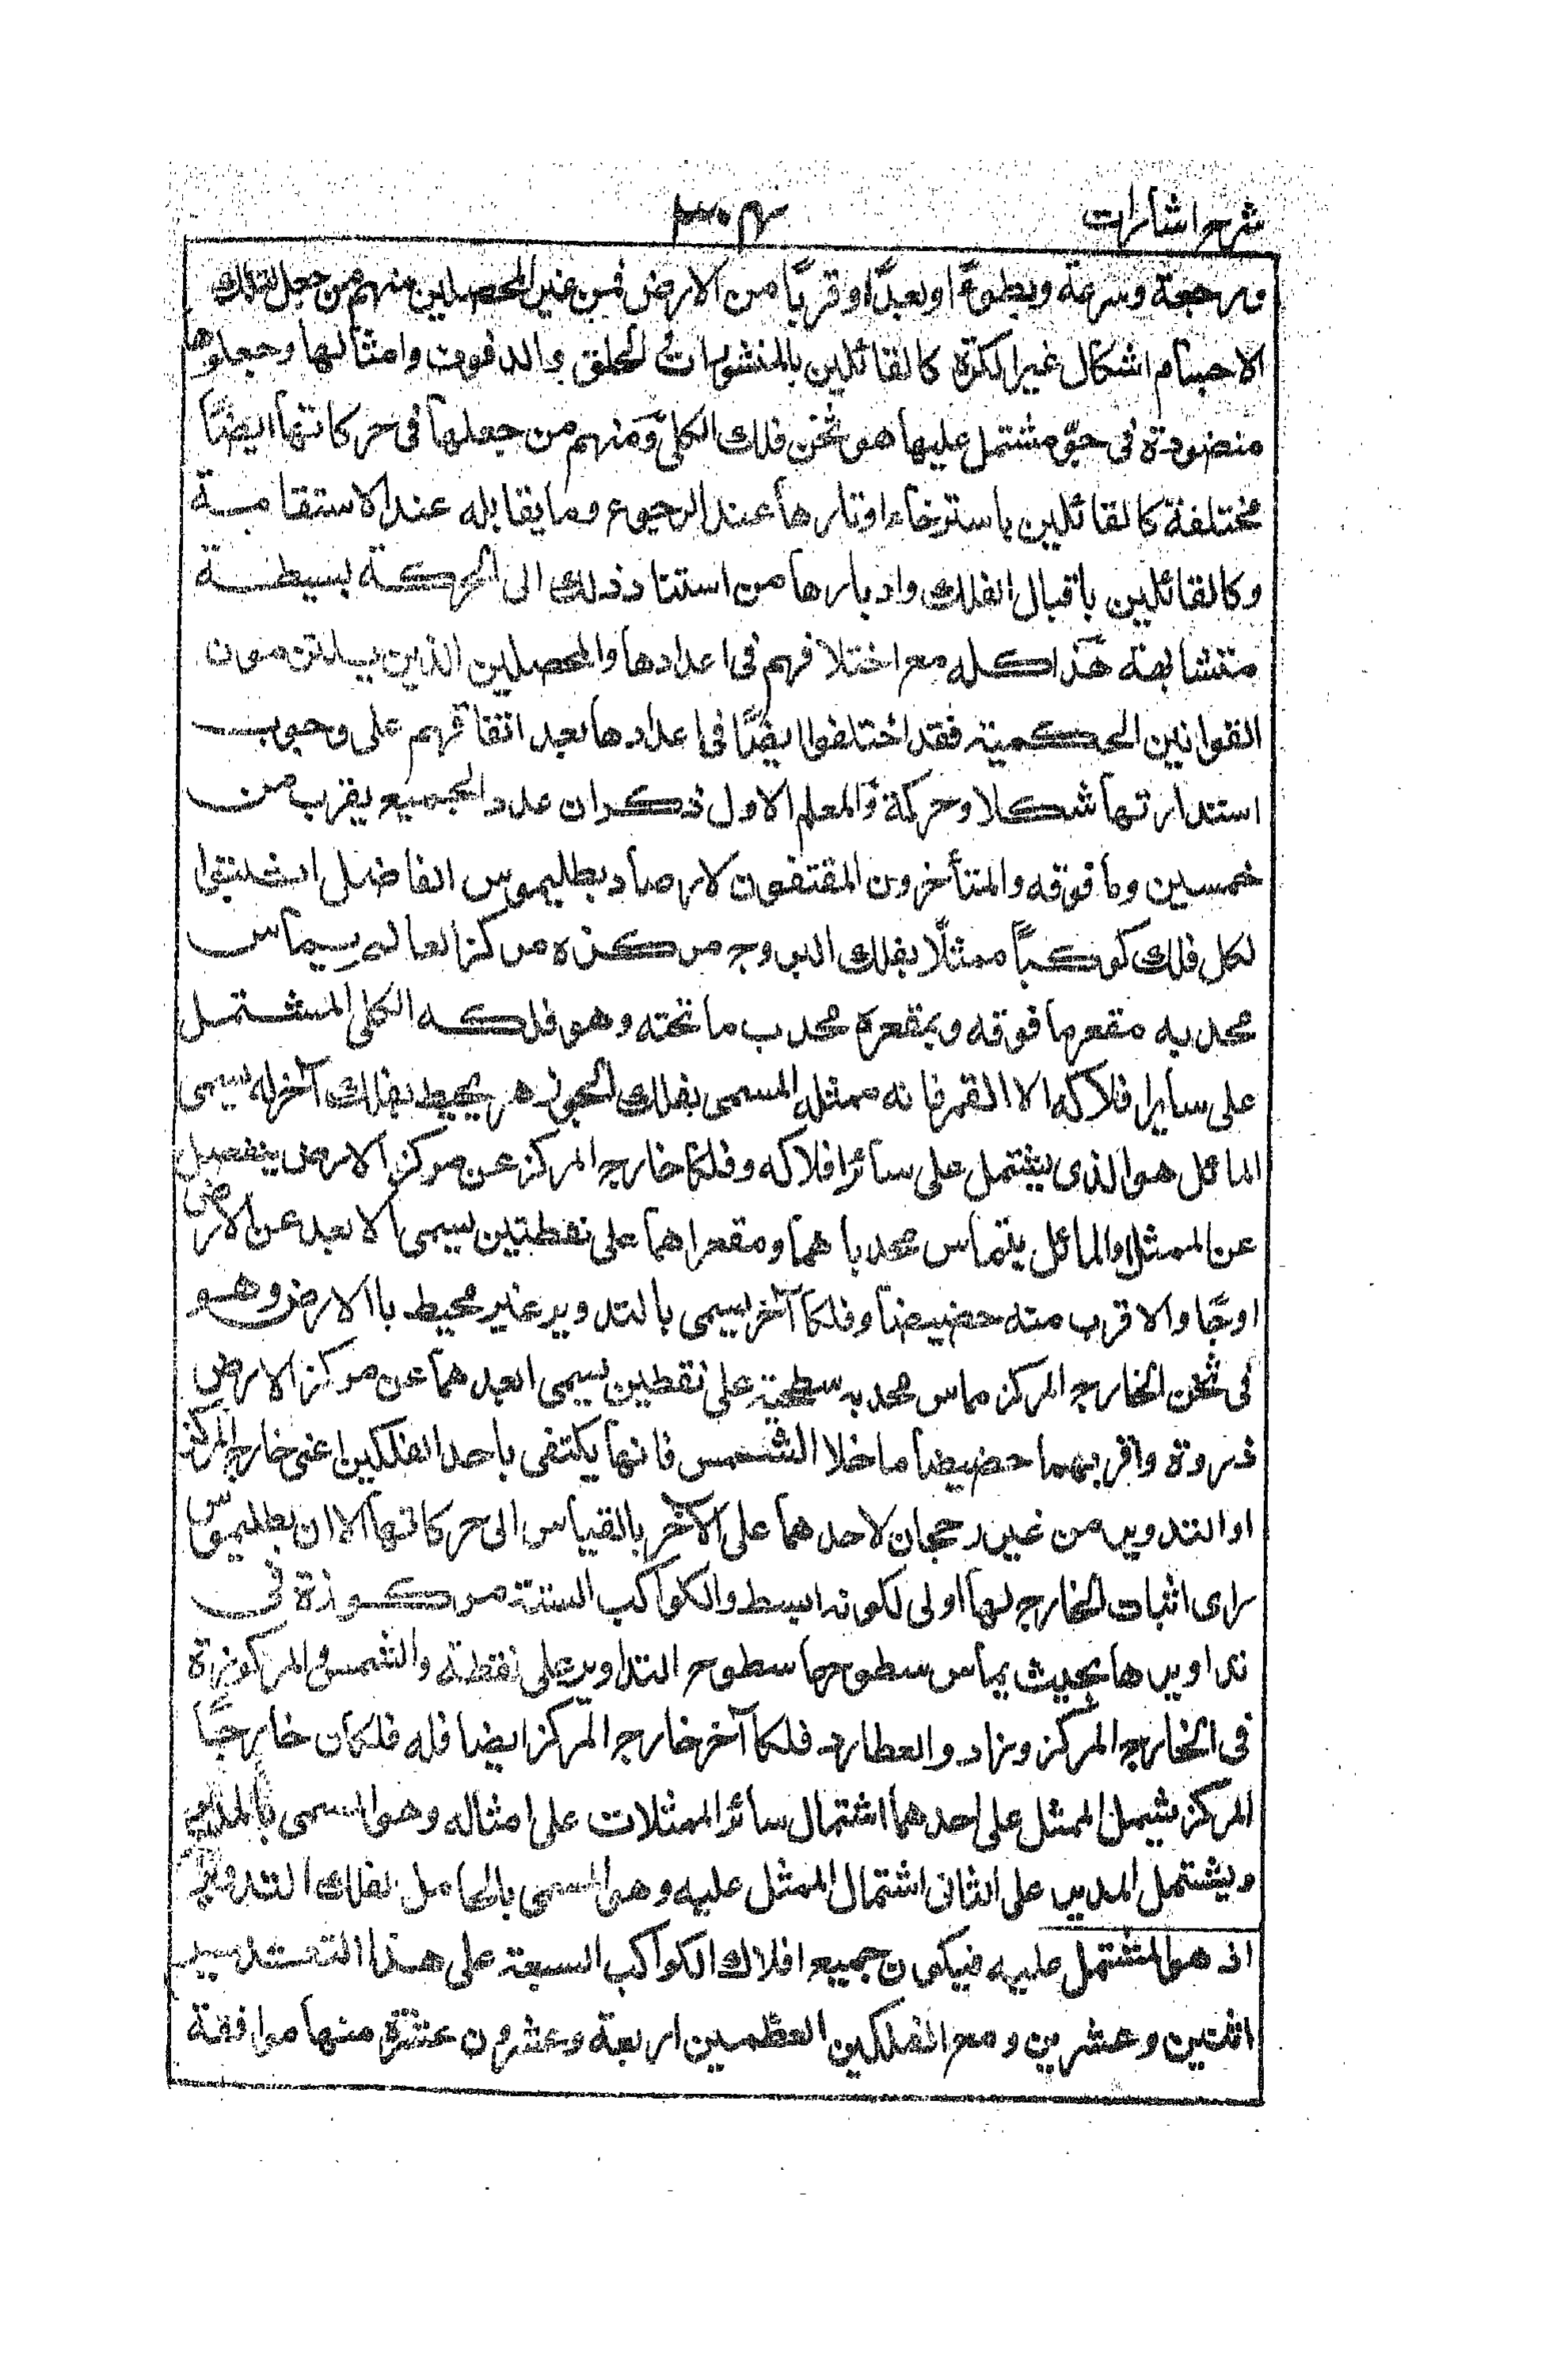 شرح اشارات
ورجعة وسرعة وبطوءًا وبعدًا وقربًا من الارض فمن غير المحصلين منهم من جعل لتلك
الاجسام اشكال غير الكرة كالقائلين بالمنشورات والحلق والدفوف وامثالها وجعلوها
منضودة فى جوّ مشتمل عليها هو ثخن فلك الكلى ومنهم من جعلها فى حركاتها ايضًا
مختلفة كالقائلين باسترخاء اوتارها عند الرجوع وما يقابله عند الاستقامة
وكالقائلين باقبال الفلك وادبارها من استناد ذلك الى الحركة بسيطة
متشابهة هذا كله مع اختلافهم فى اعدادها والمحصلين الذين يلتزمون
القوانين الحكمية فقد اختلفوا ايضًا فى اعدادها بعد اتفاقهم على وجوب
استدارتها شكلا وحركة والمعلم الاول ذكر ان عدد الجميع يقرب من
خمسين وما فوقه والمتأخرون المقتفون لارصاد بطليموس الفاضل اثبتوا
لكل فلك كوكبًا ممثلًا بفلك البروج مركزه مركز العالم يماس
محدبه مقعر ما فوقه وبمقعره محدب ما تحته وهو فلكه الكلى المشتمل
على ساير افلاكه الا القمر فانه ممثله المسمى بفلك الجوزهر يحيط بفلك آخر له يسمى
المائل هو الذى يشتمل على سائر افلاكه وفلكا خارج المركز عن مركز الارض ينفصل
عن الممثل او المائل يتماس محدباهما ومقعراهما على نقطتين يسمى الابعد عن الارض
اوجًا والاقرب منه حضيضا وفلكا آخر يسمى بالتدوير غير محيط باالارض وهو
فى ثخن الخارج المركز مماس محدبه سطحيه على نقطين يسمى ابعدهما عن مركز الارض
ذروة واقربهما حضيضا ما خلا الشمس فانها يكتفى باحد الفلكين اعنى خارج المركز
او التدوير من غير رحجان لاحدهما على الآخر بالقياس الى حركاتها الا ان بطليموس
راى اثبات الخارج لها اولى لكونه ابسط والكواكب الستة مركوزة فى
تداويرها بحيث يماس سطوحها سطوح التداوير على نقطة والشمس المركوزة
فى الخارج المركز وزاد والعطارد فلكا آخر خارج المركز ايضا فله فلكان خارجًا
المركز يشمل الممثل على احدهما اشتمال سائر الممثلات على امثاله وهو المسمى بالمدير
ويشتمل المدير على الثانى اشتمال الممثل عليه وهو المسمى بالحامل بفلك التدوير
اذ هو المشتمل عليه فيكون جميع افلاك الكواكب السبعة على هذا التقدير
اثنين وعشرين ومع الفلكين العظمين اربعة وعشرون عشرة منها موافقة